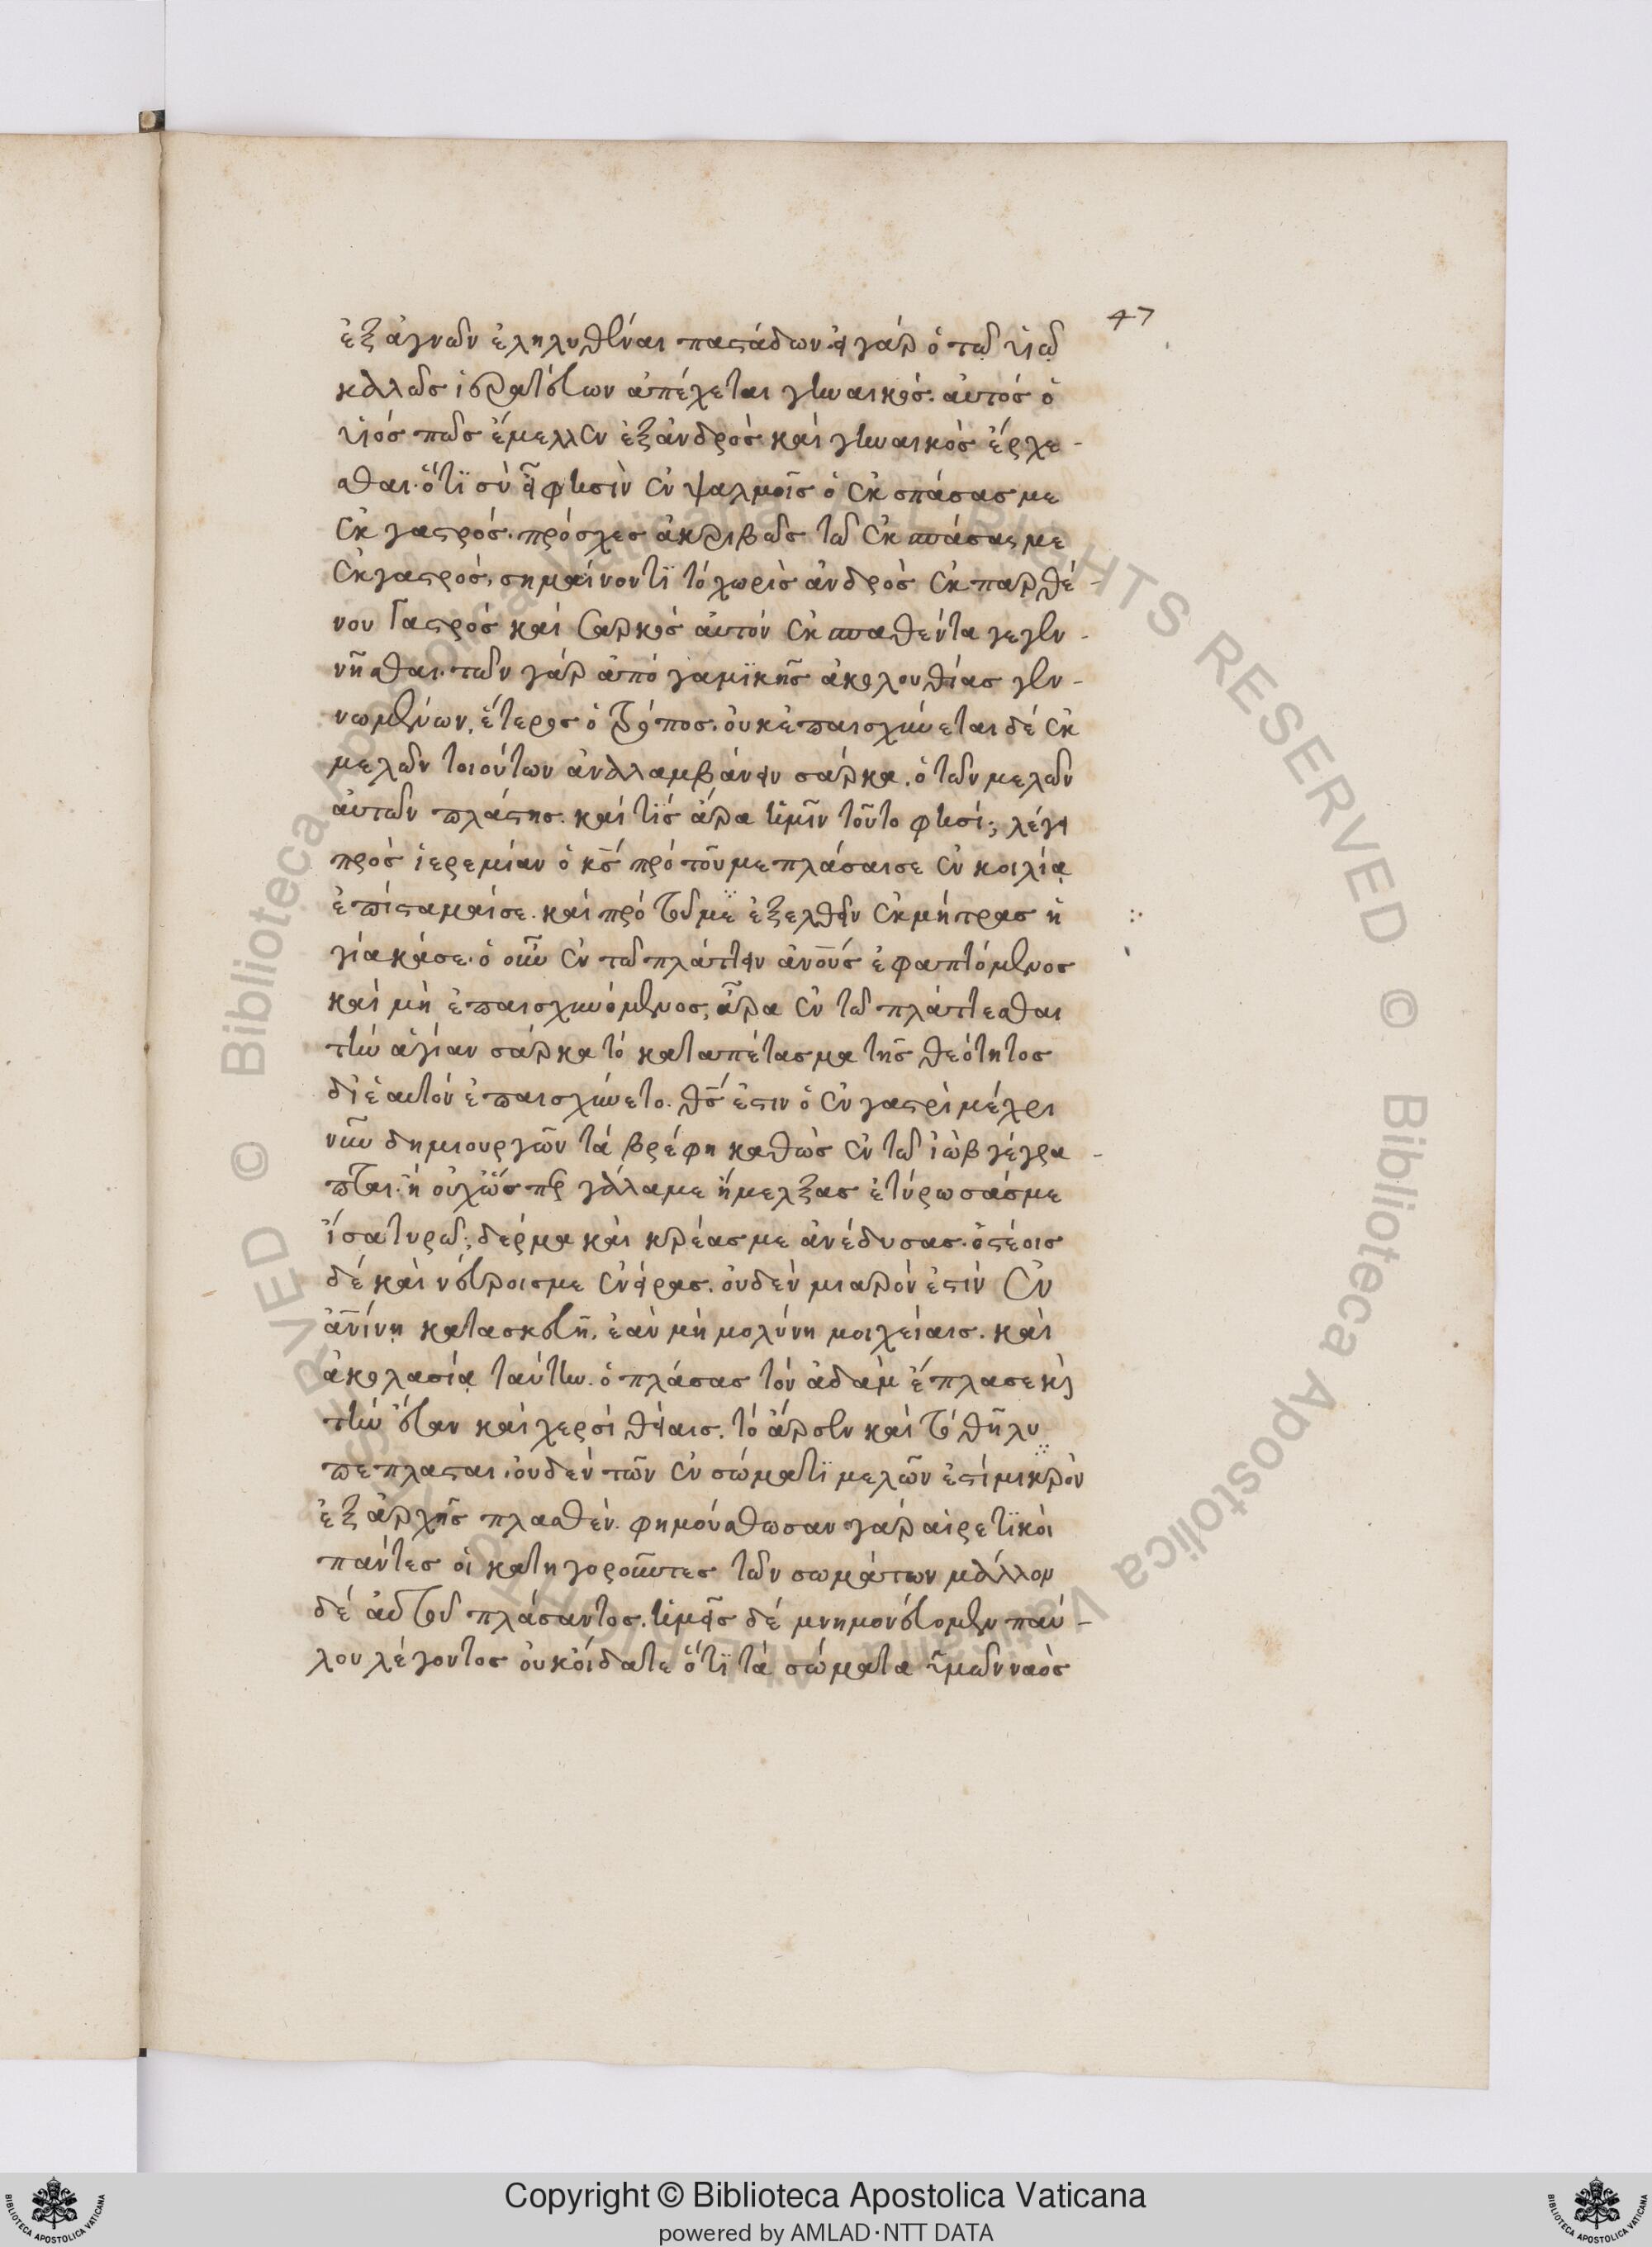 47
ἐξ ἁγνῶν ἐληλυθέναι παστάδων· εἰ γὰρ ὁ τῷ υἱῷ
καλῶς ἱερατεύων ἀπέχεται γυναικός. αὐτός ὁ
υἱός πῶς ἔμελλεν ἐξ ἀνδρὸς καὶ γυναικὸς ἔρχε-
σθαι. ὅτι σὺ εἶ φησὶν ἐν ψαλμοῖς ὁ ἐκσπάσας με
ἐκ γαστρός. πρόσχες ἀκριβῶς τῶ ἐκσπάσας με
ἐκ γαστρός, σημαίνοντι τό χωρὶς ἀνδρὸς ἐκ παρθέ-
νου γαστρός καὶ σαρκός αὐτόν ἐκσπασθέντα γεγεν-
νῆσθαι. τῶν γάρ ἀπό γαμικῆς ἀκολουθίας γεν-
νωμένων, ἕτερος ὁ τρόπος. οὐκ ἐπαισχύνεται δέ ἐκ
μελῶν τοιούτων ἀναλαμβάνειν σάρκα. ὁ τῶν μελῶν
αὐτῶν πλάστης. καί τίς ἄρα ἡμῖν τοῦτο φησί; λέγει
πρός ἱερεμίαν ὁ κς πρό τοῦ με πλάσαι σε ἐν κοιλίᾳ
ἐπίσταμαί σε. καί πρό τοῦ με ἐξελθεῖν ἐκ μήτρας ἡ
γίακά σε. ὁ οὖν ἐν τῶ πλάττειν ἀνους ἐφαπτόμενος
καί μὴ ἐπαισχυνόμενος, ἆρα ἐν τῶ πλάττεσθαι
τὴν ἁγίαν σάρκα τό καταπέτασμα τῆς θεότητος
δι ἑαυτόν ἐπαισχύνετο. θς ἐστιν ὁ ἐν γαστρὶ μέχρι
νῦν δημιουργῶν τά βρέφη καθὼς ἐν τῶ ἰὼβ γέγρα-
πται. ἢ οὐχ ὥσπερ γάλα με ἤμελξας ἐτύρωσάς με
ἴσα τυρῶ; δέρμα καὶ κρέας με ἀνέδυσας. ὀστέοις
δέ καὶ νεύροις με ἐνεῖρας. οὐδὲν μιαρόν ἐστὶν ἐν
ἀνίνῃ κατασκευῇ, ἐὰν μὴ μολύνη μοιχείαις. καὶ
ἀκολασίᾳ ταύτην. ὁ πλάσας τόν ἀδαμ ἔπλασε κὶ
τὴν εὔαν καὶ χερσί θείαις. τό ἄρσεν καὶ τό θῆλυ
πέπλασται. οὐδέν τῶν ἐν σώματι μελῶν ἐστί μικρόν
ἐξ ἀρχῆς πλασθέν. φημούσθωσαν γάρ αἱρετικοὶ
πάντες οἱ κατηγοροῦντες τῶν σωμάτων μᾶλλον
δέ αὐτοῦ πλάσαντος. ἡμεῖς δέ μνημονεύομεν παύ-
λου λέγοντος οὐκ οἴδατε ὅτι τὰ σώματα ὑμῶν ναὸς
Copyright © Biblioteca Apostolica Vaticana
powered by AMLAD·NTT DATA